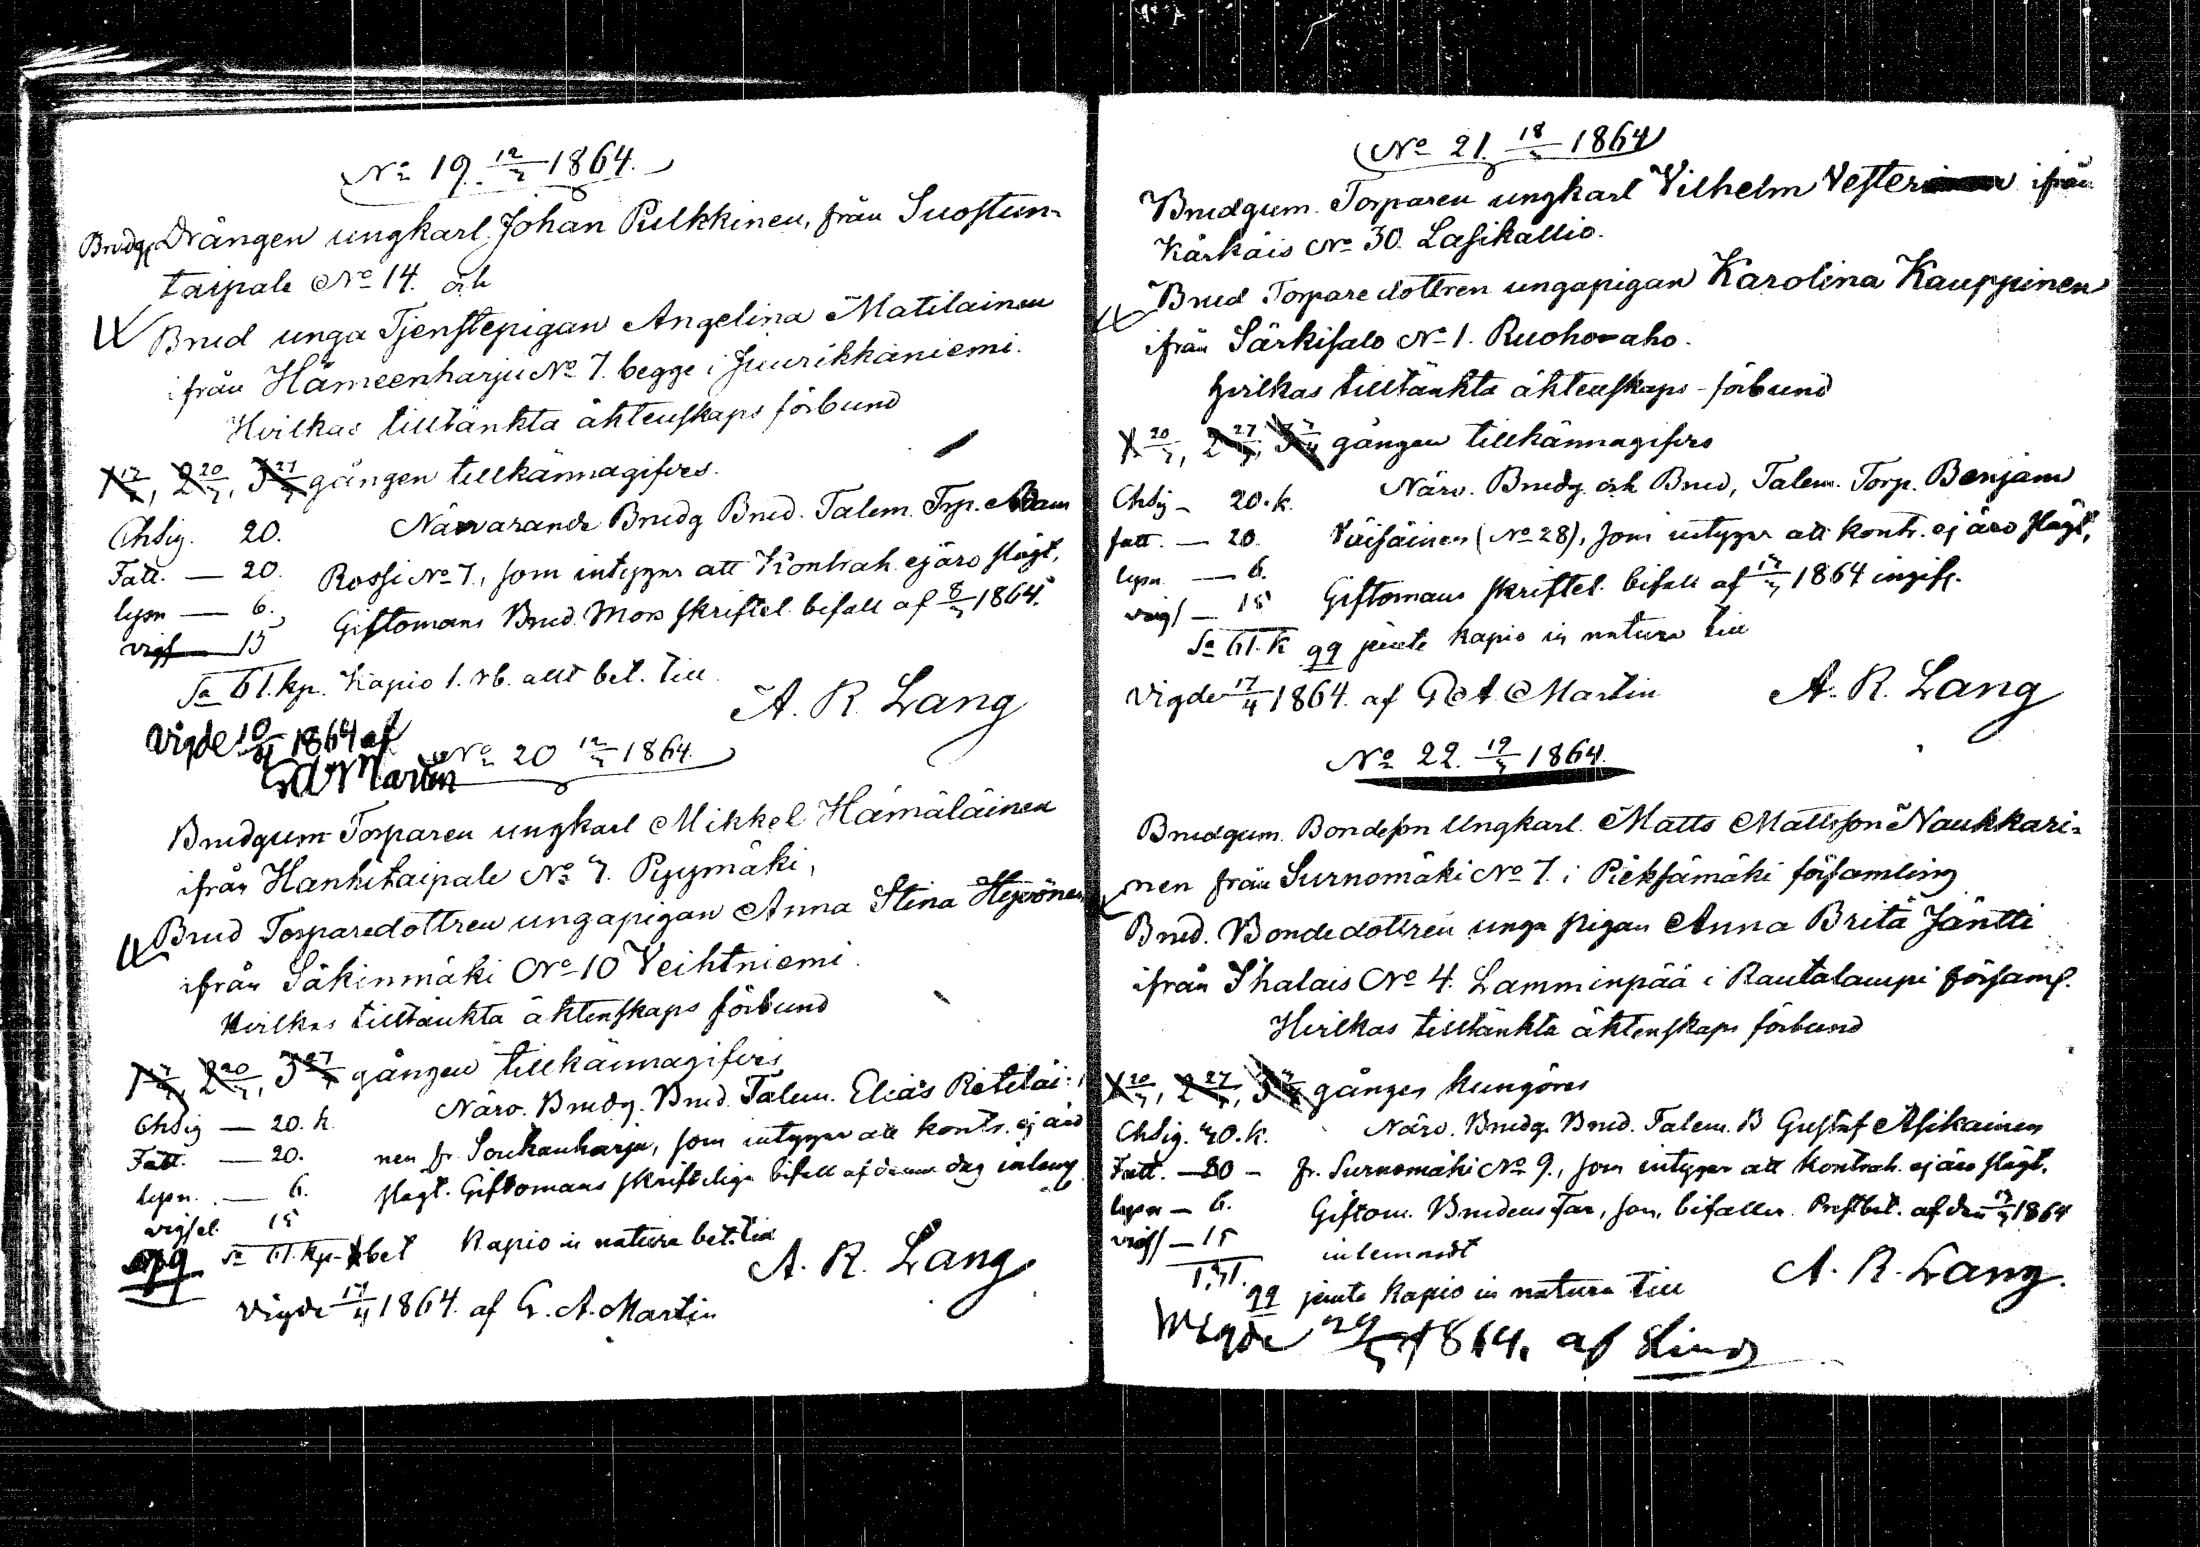 No 19. 12/3 1864.
Brudg. Drängen ungkarl. Johan Pulkkinen, från Suostun-
taipale No 14. och
Brud unga Tjenstepigan Angelina Matilainen
ifrån Hämeenharju No 7. begge i Juurikkaniemi.
Hvilkas tilltänkta äktenskaps förbund
1 13/3, 2 20/3, 3 27/3 gången tillkännagifves.
Chsig. 20. Närvarande Brudg Brud. Talem. Trp. Adam
Fatt. — 20. Rossi No 7., som intygar att Kontrah. ej äro slägt,
lysn — 6. Giftomans Brud. Mors skriftel. bifall af 8/3 1864.
vigs — 15
Sa 61. kp. Kapio 1. rb. allt bet. till
A. R. Lang
Vigde 10/4 1864 af
G A Martin
No 20 12/3 1864.
Brudgum Torparen ungkarl Mikkel Hämäläinen
ifrån Hankitaipale No 7. Pyymäki,
Brud Torparedottren ungapigan Anna Stina Heyrönen
ifrån Säkinmäki No 10 Veihtniemi.
Hvilkas tilltänkta äktenskaps förbund
1, 2 20/3, 3 27/3 gången tillkännagifves
Chsig — 20. k. Närv. Brudg. Brud. Talem. Elias Rötiläi-
Fatt. — 20. nen fr. Soukanharju, som intygar att kontr. ej äro
lysn. — 6. slägt. Giftomans skriftliga bifall af denna dag inlemn.
vigsel 15
Sa 61. kp. bet Kapio in natura bet. till
qq
A. R. Lang
Vigde 17/4 1864. af G. A. Martin
No 21. 18/3 1864
Brudgum. Torparen ungkarl Vilhelm Vester ifrån
Kärkäis No 30. Lasikallio.
Brud Torparedottren ungapigan Karolina Kauppinen
ifrån Särkisalo No 1. Ruohonaho.
hvilkas tilltänkta äktenskaps-förbund
1 20/3, 2 27/3, 3 gången tillkännagifves
Chsig — 20. k. Närv. Brudg. och Brud, Talem. Torp. Benjam
fatt. — 20 (No 28), som intygar att kontr. ej äro slägt,
lysn — 6. Giftomans skriftel. bifall af 17/3 1864 ingift.
vigs — 15
Sa 61. k qq jemte kapio in natura till
Vigde 17/4 1864. af G A Martin
A. R. Lang
No 22. 19/3 1864.
Brudgum. Bondeson Ungkarl. Matts Mattsson Naukkari-
nen från Surnomäki No 7. i Pieksämäki församling
Brud. Bondedottren unga pigan Anna Brita Jäntti
ifrån Ihalais No 4. Lamminpää i Rautalampi församl.
Hvilkas tilltänkta äktenskaps förbund
1 20/3, 2 27/3, 3 gången kungöres
Chsig. 40. k. Närv. Brudg. Brud. Talem. B Gustaf Asikainen
Fatt. — fr. Surnomäki No 9., som intygar att kontrah. ej äro slägt.
lysn — 6. Giftom. Brudens Far, som bifaller. Prestbet. af den 1864
vigs — 15 inlemnadt
qq jemte kapio in natura till
A. R. Lang.
Wigde 1864. af Lind